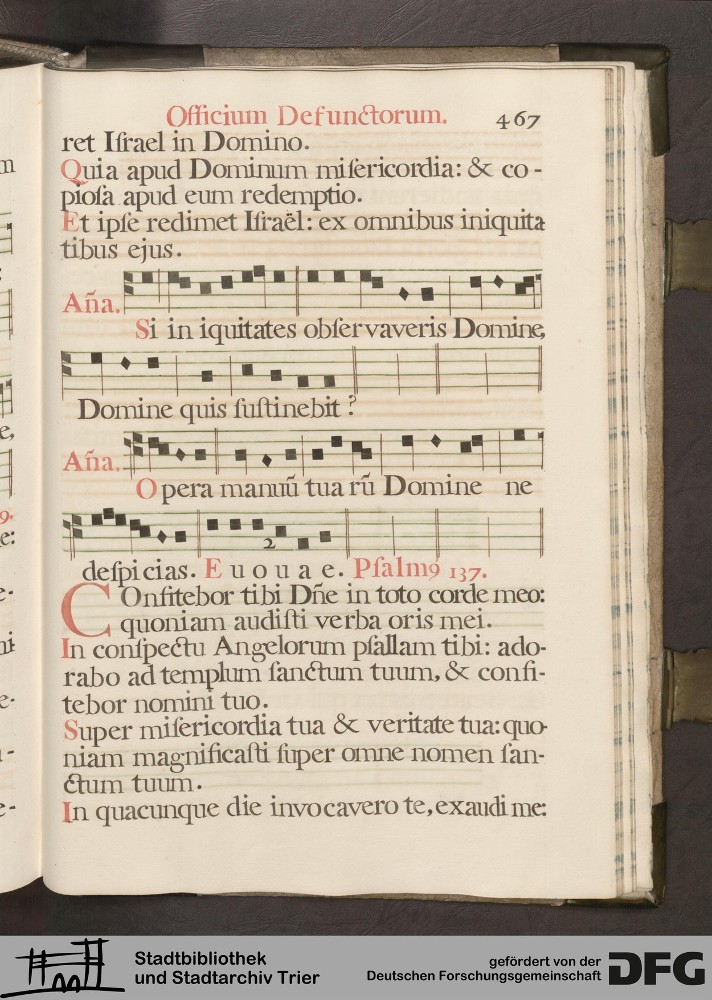 Officium Defunctorum. 467
ret Iſrael in Domino.
Quia apud Dominum miſericordia: & co-
pioſa apud eum redemptio.
Et ipſe redimet Iſraël: ex omnibus iniquita
tibus ejus.
Aña.
Si in iquitates obſervaveris Domine,
Domine quis ſuſtinebit?
Aña.
Opera manuū tuarū Domine ne
2
deſpicias. E u o u a e. Pſalm9 137.
COnfitebor tibi Dñe in toto corde meo:
quoniam audiſti verba oris mei.
In conſpectu Angelorum pſallam tibi: ado-
rabo ad templum ſanctum tuum, & confi-
tebor nomini tuo.
Super miſericordia tua & veritate tua: quo-
niam magnificaſti ſuper omne nomen ſan-
ctum tuum.
In quacunque die invocavero te, exaudi me:
Stadtbibliothek
und Stadtarchiv Trier
gefördert von der
Deutschen Forschungsgemeinschaft
DFG